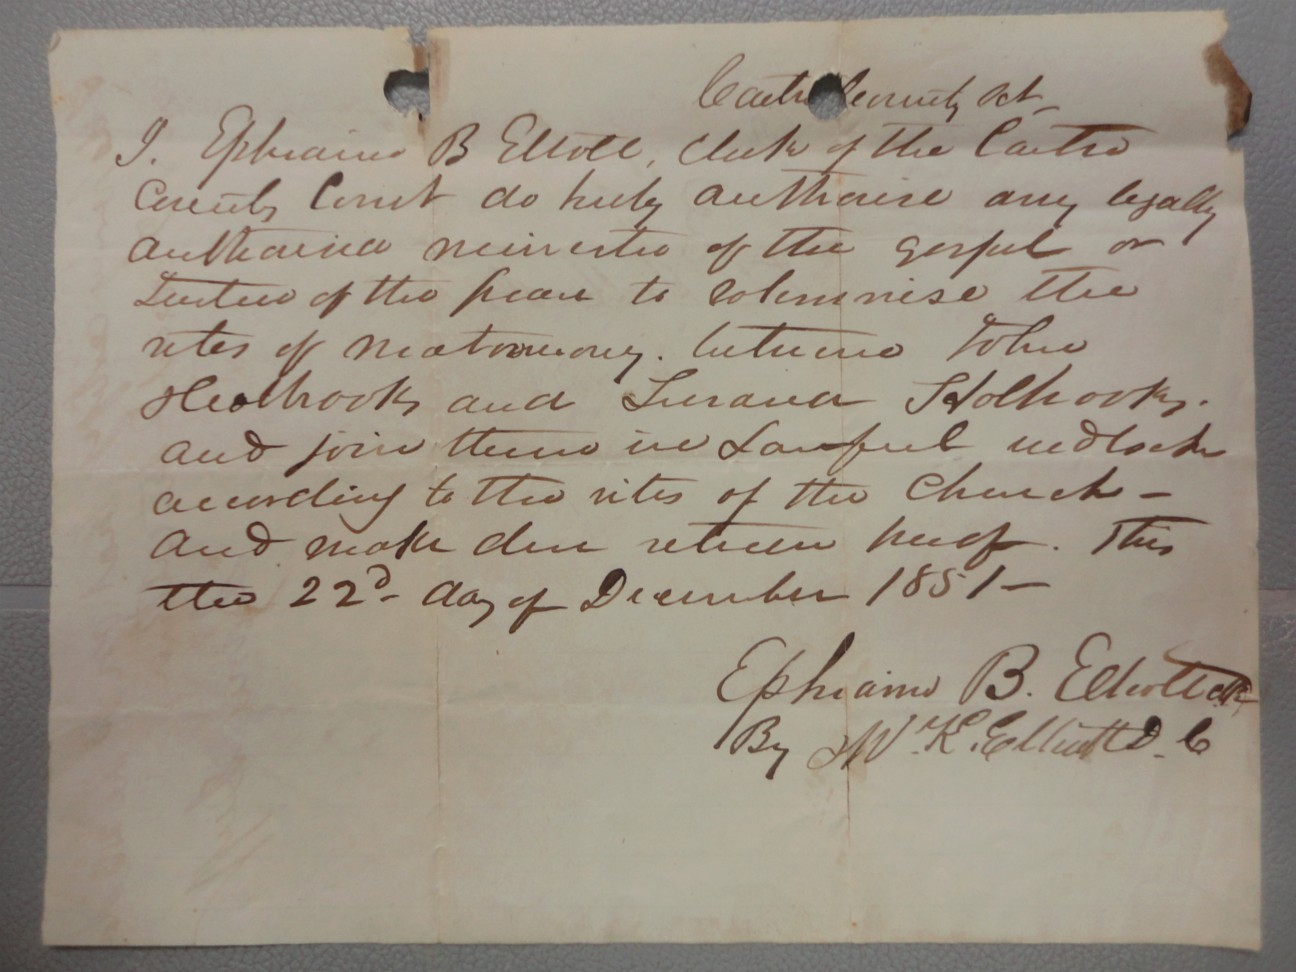 Carter County Sct
I. Ephraim B Elliott, clerk of the Carter
County Court do hereby authorise any legally
authorised minister of the gospel or
Justice of the peace to solemnise the
rites of matrimony. between John
Holbrooks and Lurana Holbrooks.
and join them in Lawful wedlock
according to the rites of the Church -
and make due return hereof. This
the 22d day of December 1851 -
Ephraim B. Elliott clk
By W. K. Elliott D. C